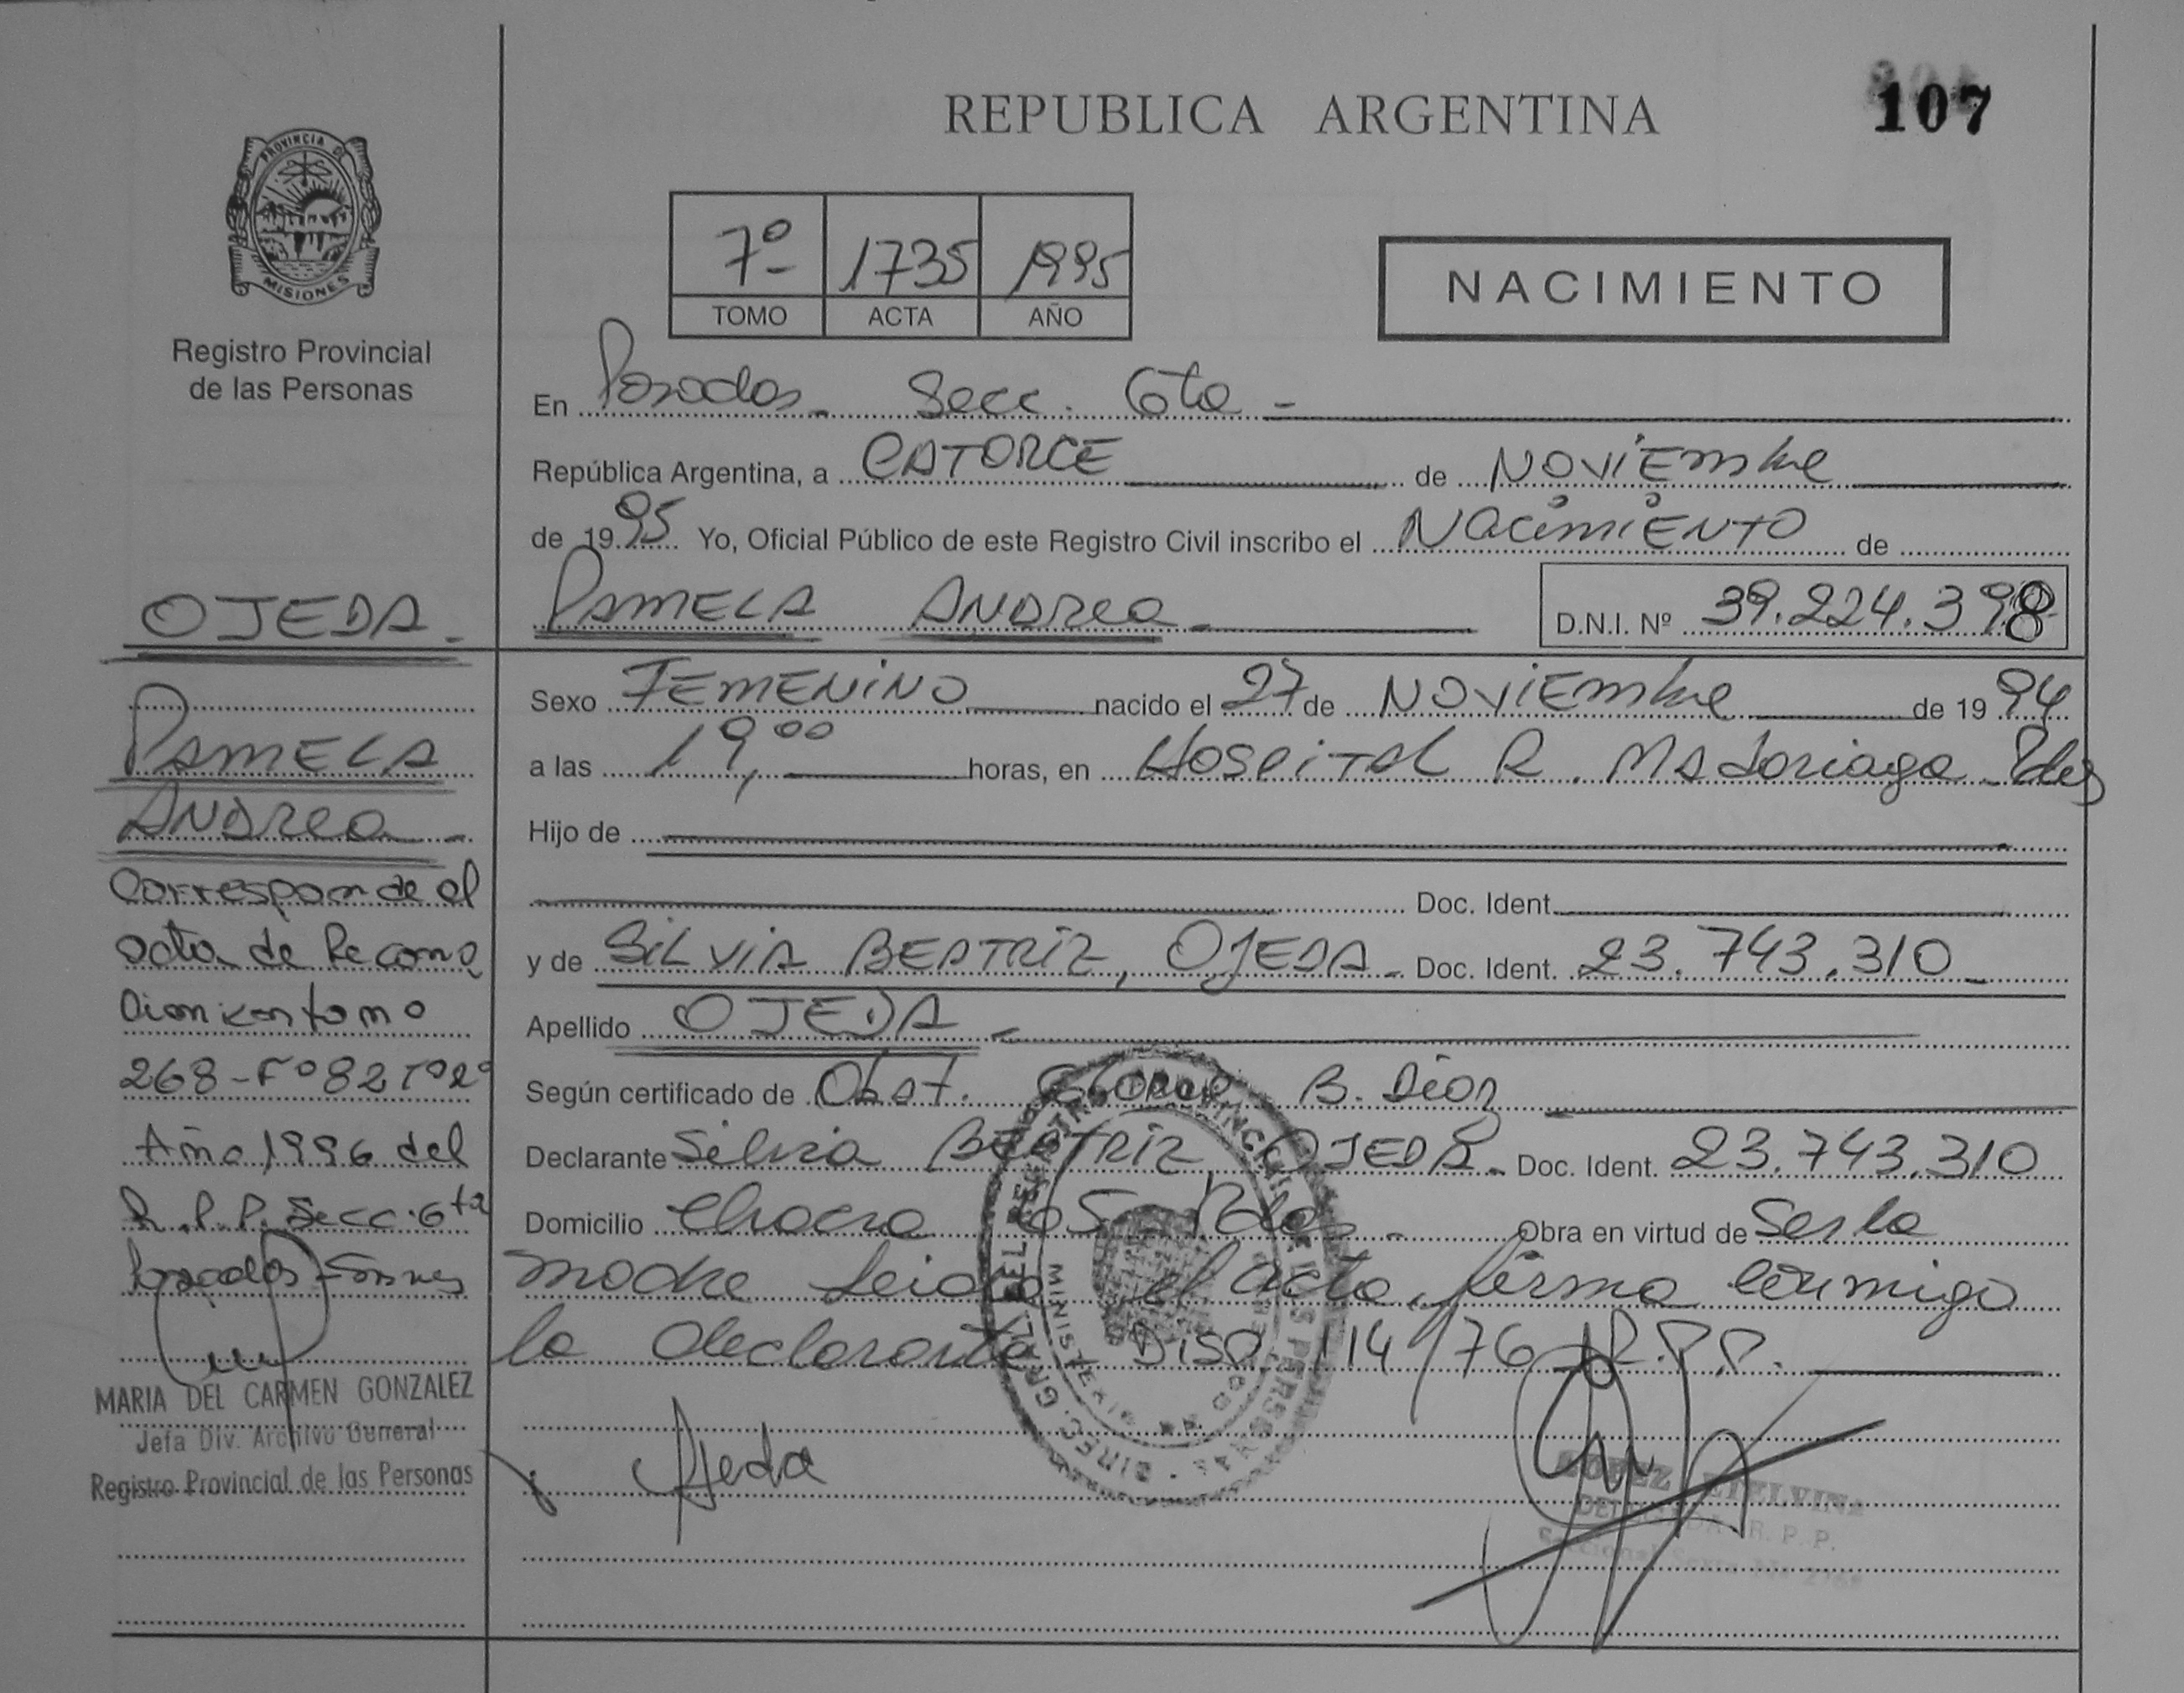 REPUBLICA ARGENTINA
107
PROVINCIA DE
MISIONES
Registro Provincial
de las Personas
7º 1735 1995
TOMO ACTA AÑO
NACIMIENTO
En Posadas - Secc. 6ta -
República Argentina, a CATORCE de NOViEmbre
de 1995 Yo, Oficial Público de este Registro Civil inscribo el NacimiENTO de
PAMELA ANDREA - D.N.I. Nº 39.224.398
Sexo FEMENiNO nacido el 27 de NOViEmbre de 1994
a las 19,00 horas, en HOSPiTAL R. MADariaga - Pdas
Hijo de
Doc. Ident.
y de SiLViA BEATRiZ, OJEDA - Doc. Ident. 23.743.310
Apellido OJEDA -
Según certificado de Obst. B. Diaz
Declarante Silvia BEATRiZ OJEDA - Doc. Ident. 23.743.310
Domicilio Chacra 65 - Pdas - Obra en virtud de Ser la
madre Leida el acta, firma conmigo
la declarante Disp. 114/76 R.P.P.
Ojeda
OJEDA -
PAMELA
ANDREA -
Corresponde al
acta de Recono
cimiento nº
268 - Fº 82 Tº 2º
Año 1996 del
R.P.P. Secc. 6ta
Posadas - Msnes
MARIA DEL CARMEN GONZALEZ
Jefa Div. Archivo General
Registro Provincial de las Personas
ETELVINA
R. P. P.